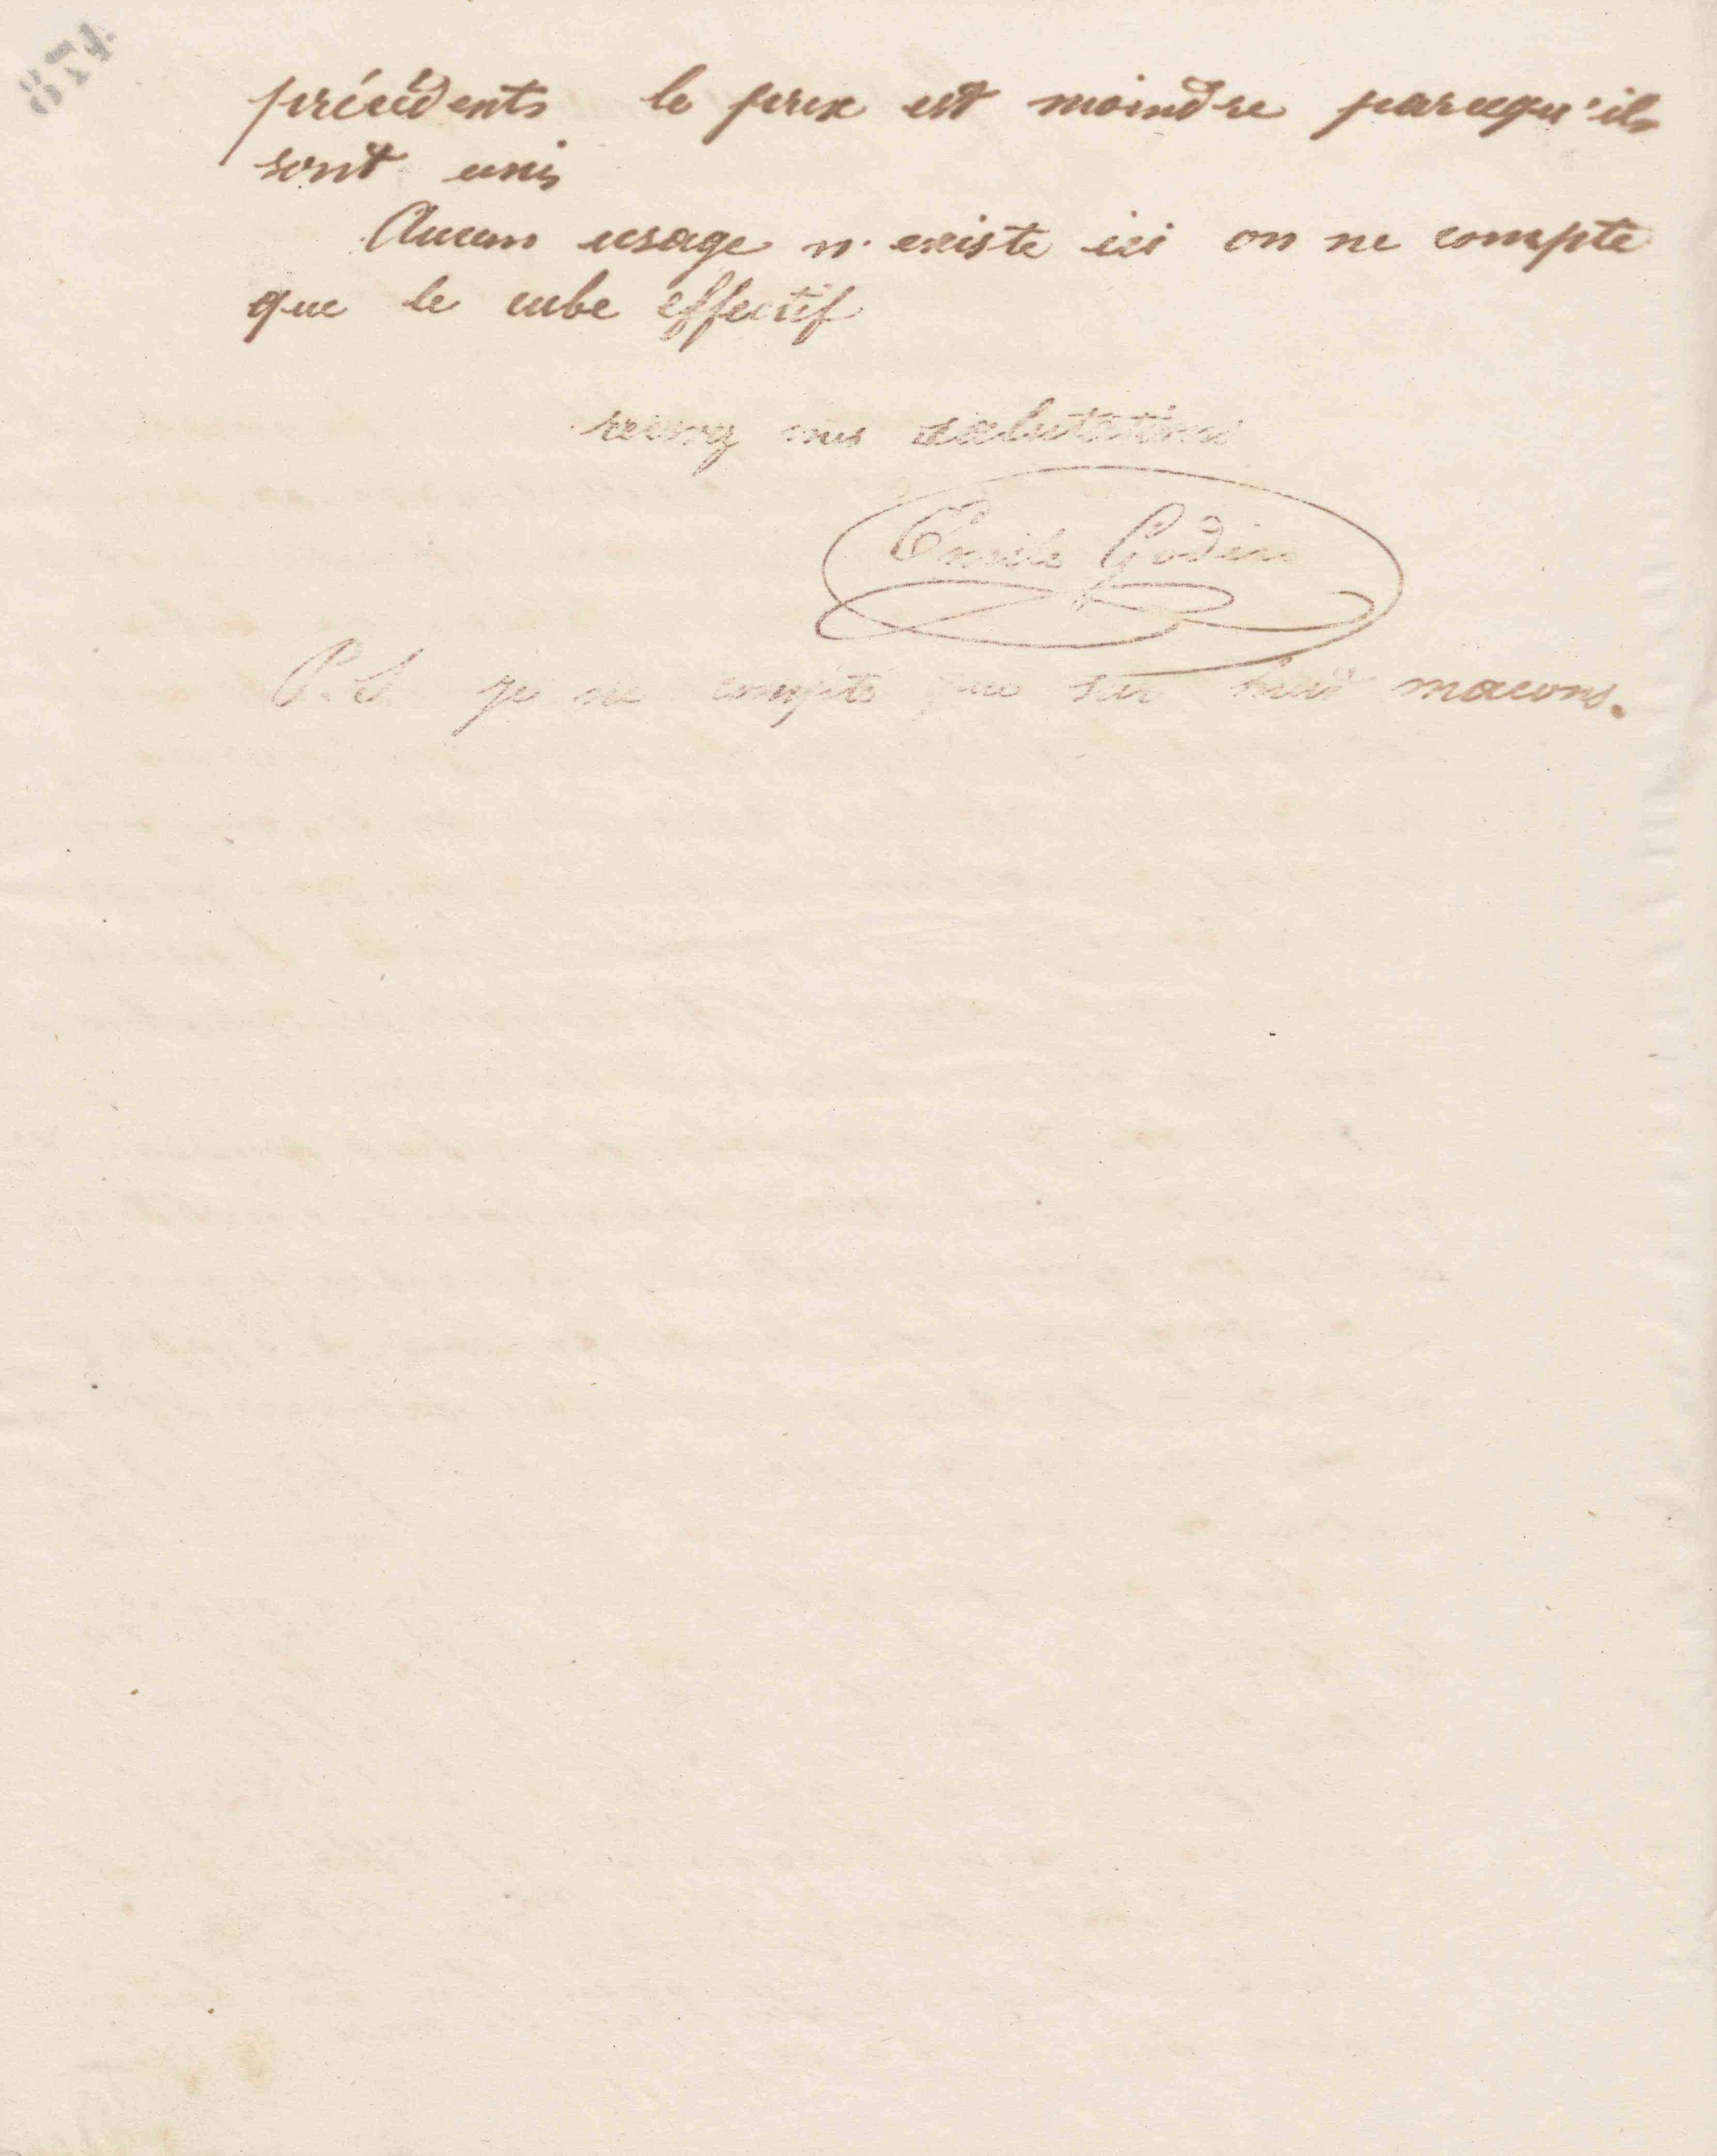 874
précédents le prix est moindre parcequ'ils
sont unis
Aucun usage n'existe ici on ne compte
que le cube effectif
recevez mes salutations
Emile Godin
P.S je ne compte que sur huit macons.